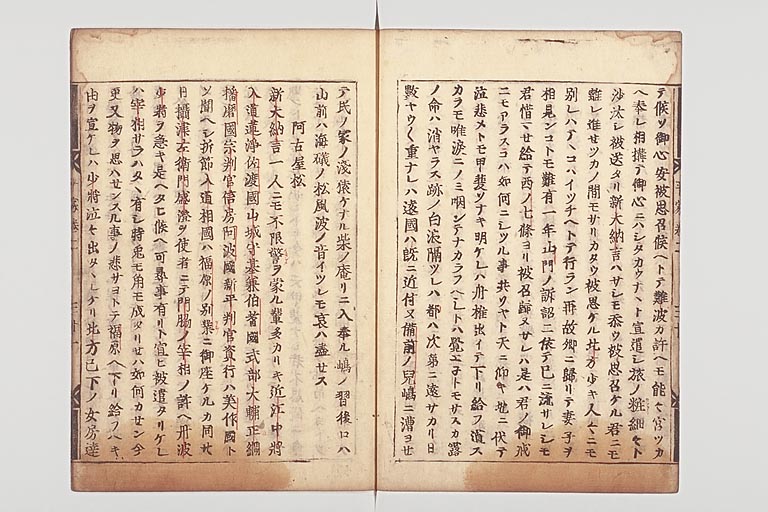 テ候ソ御心安被思召候ヘトテ難波カ許ヘモ能々官ツカ
ヘ奉レ相構テ御心ニハシタカウナト宣遣レ旅ノ粧細々ト
沙汰レ被送タリ新大納言ハサレモ忝ウ被思召ケル君ニモ
離レ進セツカノ間モサリカタウ被思ケル北方少キ人々ニモ
別レハテヽコハイツチヘトテ行ラン再故郷ニ歸リテ妻子ヲ
相見ンコトモ難有一年山門ノ訴詔ニ依テ已ニ流サレシヲモ
君惜マセ給テ西ノ七條ヨリ被召歸ヌサレハ是ハ君ノ御戒
ニモアラスコハ如何ニレツル事共ソヤト天ニ仰キ地ニ伏テ
泣悲メトモ甲斐ソナキ明ケレハ舟推出イテ下リ給フ道ス
カラモ唯涙ニノミ咽ンテナカラフヘレトハ覺エ子トモサスカ露
ノ命ハ消ヤラス跡ノ白浪隔ツレハ都ハ次第ニ遠サカリ日
數ヤウく重ナレハ遠國ハ既ニ近付ヌ備前ノ兒嶋ニ漕ヨセ
テ民ノ家ノ淺猿ケナル柴ノ庵リニ入奉ル嶋ノ習後ロハ
山前ハ海礒ノ松風波ノ音イツレモ哀ハ盡セス
阿古屋松
新大納言一人ニモ不限警ヲ蒙ル輩多カリキ近江中將
入道蓮浄佐渡國山城守基兼伯耆國式部大輔正綱
播磨國宗判官信房阿波國新平判官資行ハ美作國ト
ソ聞ヘシ折節入道相國ハ福原ノ別業ニ御座ケルカ同廿
日攝津左衛門盛澄ヲ使者ニテ門脇ノ宰相ノ許ヘ丹波
少將ヲ急キ是ヘタヒ候ヘ可尋事有リト宣ヒ被遣タリケレ
ハ宰相サラハタヽ有シ時兎モ角モ成タリセハ如何カセン今
更又物ヲ思ハセンスル事ノ悲サヨトテ福原ヘ下リ給フヘキ
由ヲ宣ケレハ少將泣々出タヽレケリ北方已下ノ女房達